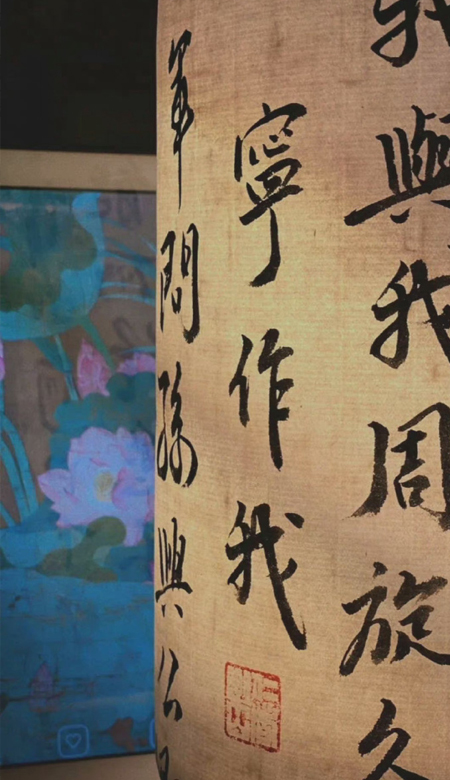 我與我周旋久
寧作我
軍問孫興公